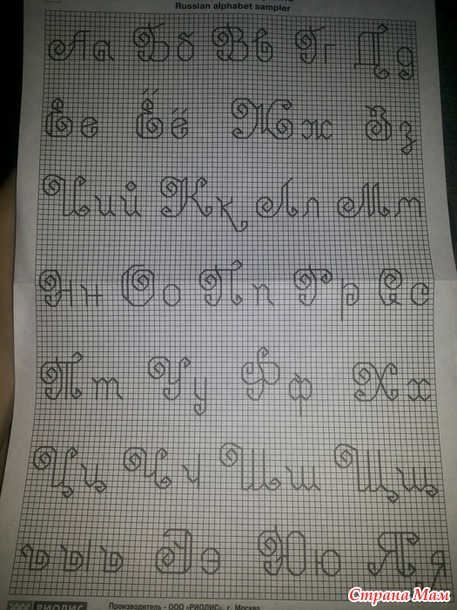 Russian alphabet sampler
Аа Бб Вв Гг Дд
Ее Ёё Жж Зз
Иий Кк Лл Мм
Нн Оо Пп Рр Сс
Тт Уу Фф Хх
Цц Чч Шш Щщ
ъ ы ь Ээ Юю Яя
РИОЛИС Производитель - ООО «РИОЛИС», г. Москва
Страна Мам